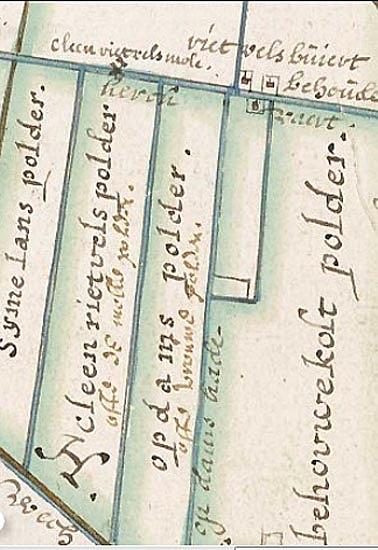 cleen rietvels mole.
riet vels buiert
behoude
vaert.
syme lans polder.
cleen rietvels polder
offte de molle polder.
opdams polder.
offte brouwe polder.
opdams kade.
behouwekolt polder.